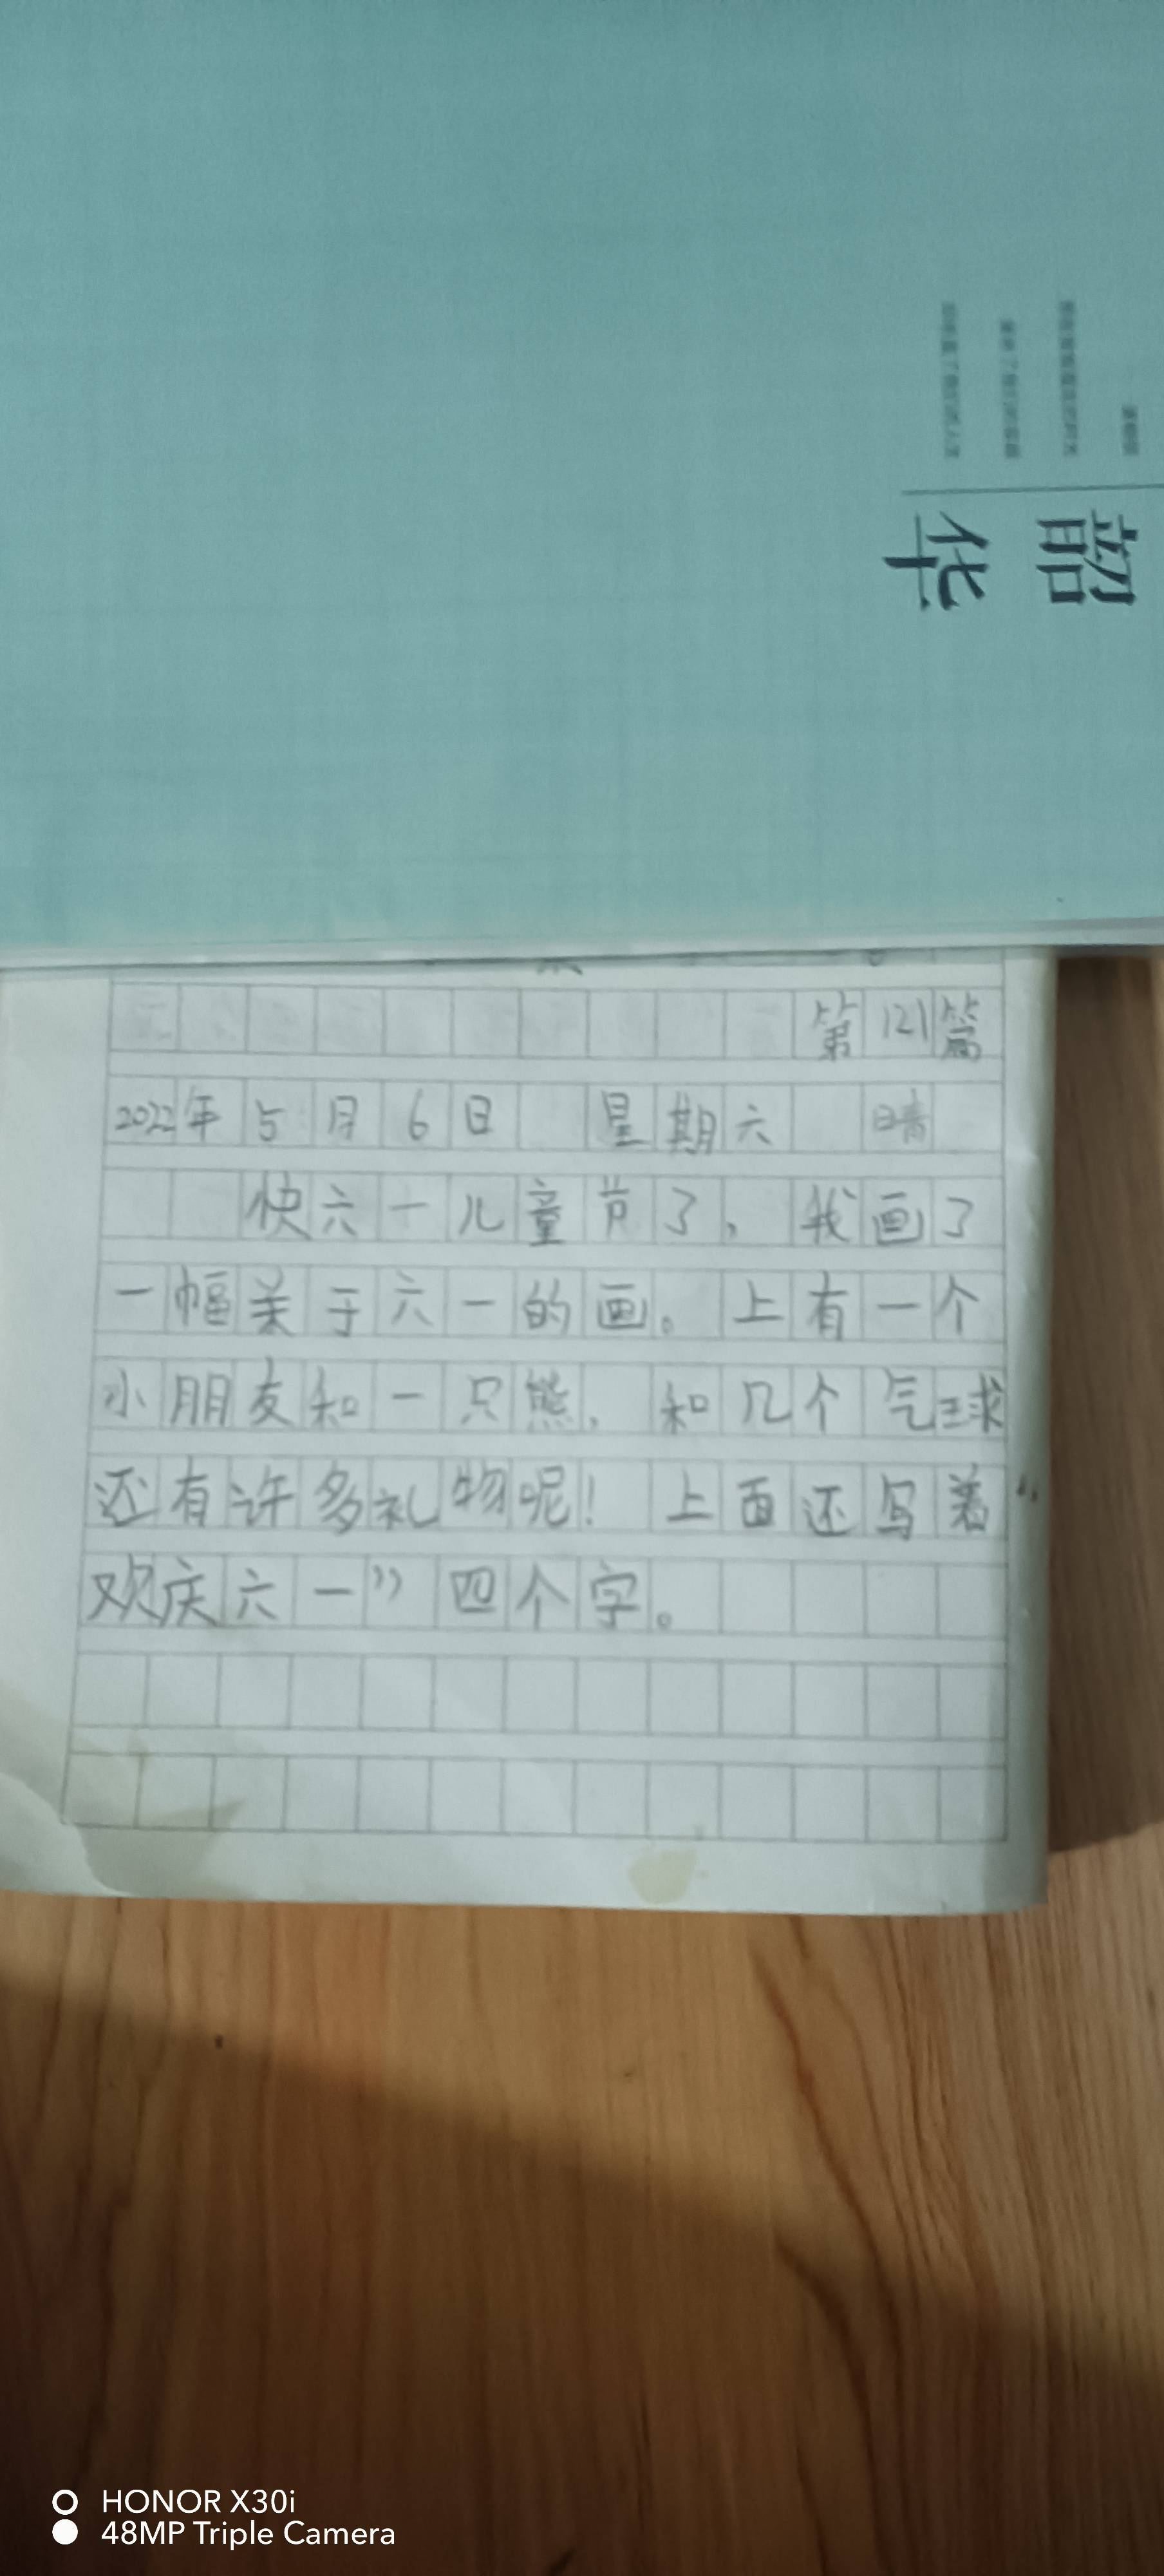 韶华
第121篇
2022年5月6日 星期六 晴
快六一儿童节了，我画了
一幅关于六一的画。上有一个
小朋友和一只熊，和几个气球
还有许多礼物呢！上面还写着“
欢庆六一”四个字。
HONOR X30i
48MP Triple Camera